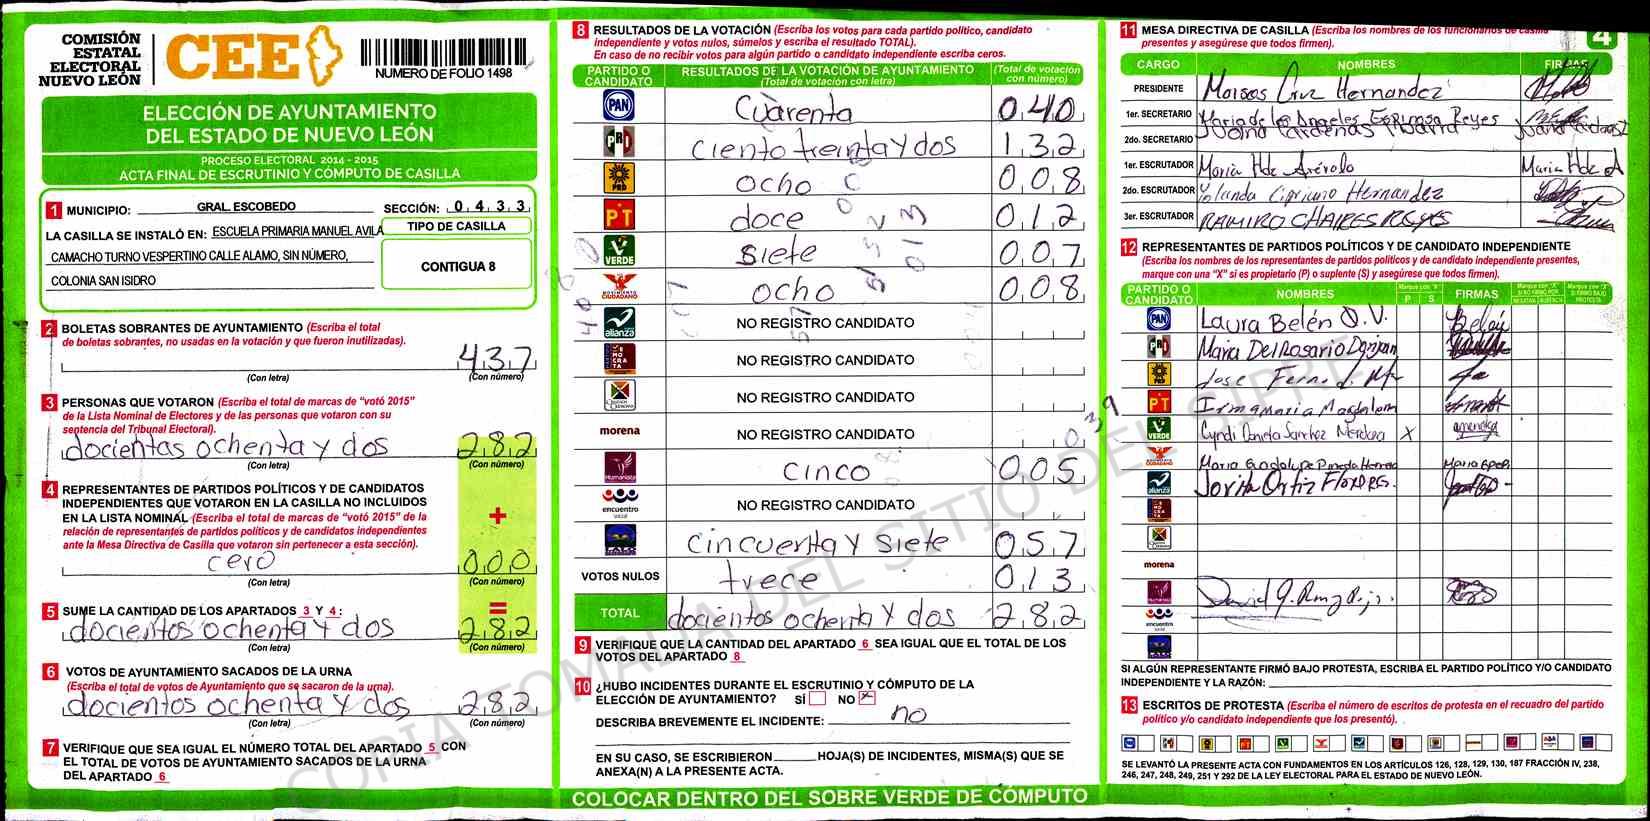 COMISIÓN
ESTATAL
ELECTORAL
NUEVO LEÓN
CEE
NUMERO DE FOLIO 1498
ELECCIÓN DE AYUNTAMIENTO
DEL ESTADO DE NUEVO LEÓN
PROCESO ELECTORAL 2014 - 2015
ACTA FINAL DE ESCRUTINIO Y CÓMPUTO DE CASILLA
1 MUNICIPIO: GRAL. ESCOBEDO SECCIÓN: 0 4 3 3
LA CASILLA SE INSTALÓ EN: ESCUELA PRIMARIA MANUEL AVILA
CAMACHO TURNO VESPERTINO CALLE ALAMO, SIN NÚMERO,
COLONIA SAN ISIDRO
TIPO DE CASILLA
CONTIGUA 8
2 BOLETAS SOBRANTES DE AYUNTAMIENTO (Escriba el total
de boletas sobrantes, no usadas en la votación y que fueron inutilizadas).
437
(Con letra) (Con número)
3 PERSONAS QUE VOTARON (Escriba el total de marcas de "votó 2015"
de la Lista Nominal de Electores y de las personas que votaron con su
sentencia del Tribunal Electoral).
docientas ochenta y dos 282
(Con letra) (Con número)
4 REPRESENTANTES DE PARTIDOS POLÍTICOS Y DE CANDIDATOS
INDEPENDIENTES QUE VOTARON EN LA CASILLA NO INCLUIDOS
EN LA LISTA NOMINAL (Escriba el total de marcas de "votó 2015" de la
relación de representantes de partidos políticos y de candidatos independientes
ante la Mesa Directiva de Casilla que votaron sin pertenecer a esta sección).
+
cero 000
(Con letra) (Con número)
=
5 SUME LA CANTIDAD DE LOS APARTADOS 3 Y 4:
docientos ochenta y dos 282
(Con letra) (Con número)
6 VOTOS DE AYUNTAMIENTO SACADOS DE LA URNA
(Escriba el total de votos de Ayuntamiento que se sacaron de la urna).
docientos ochenta y dos 282
(Con letra) (Con número)
7 VERIFIQUE QUE SEA IGUAL EL NÚMERO TOTAL DEL APARTADO 5 CON
EL TOTAL DE VOTOS DE AYUNTAMIENTO SACADOS DE LA URNA
DEL APARTADO 6
8 RESULTADOS DE LA VOTACIÓN (Escriba los votos para cada partido político, candidato
independiente y votos nulos, súmelos y escriba el resultado TOTAL).
En caso de no recibir votos para algún partido o candidato independiente escriba ceros.
PARTIDO O CANDIDATO RESULTADOS DE LA VOTACIÓN DE AYUNTAMIENTO (Total de votación con letra) (Total de votación con número)
PAN Cuarenta 040
PRI ciento treinta y dos 132
PRD ocho 008
PT doce 012
VERDE siete 007
MOVIMIENTO CIUDADANO ocho 008
alianza NO REGISTRO CANDIDATO
NO REGISTRO CANDIDATO
NO REGISTRO CANDIDATO
morena NO REGISTRO CANDIDATO
Humanista cinco 005
encuentro social NO REGISTRO CANDIDATO
cincuenta y siete 057
VOTOS NULOS trece 013
TOTAL docientos ochenta y dos 282
9 VERIFIQUE QUE LA CANTIDAD DEL APARTADO 6 SEA IGUAL QUE EL TOTAL DE LOS
VOTOS DEL APARTADO 8
10 ¿HUBO INCIDENTES DURANTE EL ESCRUTINIO Y CÓMPUTO DE LA
ELECCIÓN DE AYUNTAMIENTO? SÍ NO X
DESCRIBA BREVEMENTE EL INCIDENTE: no
EN SU CASO, SE ESCRIBIERON HOJA(S) DE INCIDENTES, MISMA(S) QUE SE
ANEXA(N) A LA PRESENTE ACTA.
COLOCAR DENTRO DEL SOBRE VERDE DE CÓMPUTO
4
11 MESA DIRECTIVA DE CASILLA (Escriba los nombres de los funcionarios de casilla
presentes y asegúrese que todos firmen).
CARGO NOMBRES FIRMAS
PRESIDENTE Moises Cruz Hernandez
1er. SECRETARIO Maria de los Angeles Espinosa Reyes
2do. SECRETARIO Juana Cardenas Ibarra
1er. ESCRUTADOR Maria Hde Arévolo Maria Hde A
2do. ESCRUTADOR Yolanda Cipriano Hernandez
3er. ESCRUTADOR RAMIRO CHAIRES REYES
12 REPRESENTANTES DE PARTIDOS POLÍTICOS Y DE CANDIDATO INDEPENDIENTE
(Escriba los nombres de los representantes de partidos políticos y de candidato independiente presentes,
marque con una "X" si es propietario (P) o suplente (S) y asegúrese que todos firmen).
PARTIDO O CANDIDATO NOMBRES P S FIRMAS
PAN Laura Belén O.V. Belén
PRI Maria Del Rosario
PRD Jose
PT Irma Maria Magdalena
VERDE Cyndi Daniela Sanchez Mendoza X
CIUDADANO Maria Guadalupe Pineda
alianza Jovita Ortiz Flores
morena
David J.
encuentro social
SI ALGÚN REPRESENTANTE FIRMÓ BAJO PROTESTA, ESCRIBA EL PARTIDO POLÍTICO Y/O CANDIDATO
INDEPENDIENTE Y LA RAZÓN:
13 ESCRITOS DE PROTESTA (Escriba el número de escritos de protesta en el recuadro del partido
político y/o candidato independiente que los presentó).
SE LEVANTÓ LA PRESENTE ACTA CON FUNDAMENTOS EN LOS ARTÍCULOS 126, 128, 129, 130, 187 FRACCIÓN IV, 238,
246, 247, 248, 249, 251 Y 292 DE LA LEY ELECTORAL PARA EL ESTADO DE NUEVO LEÓN.
COPIA TOMADA DEL SITIO DEL SIPRE